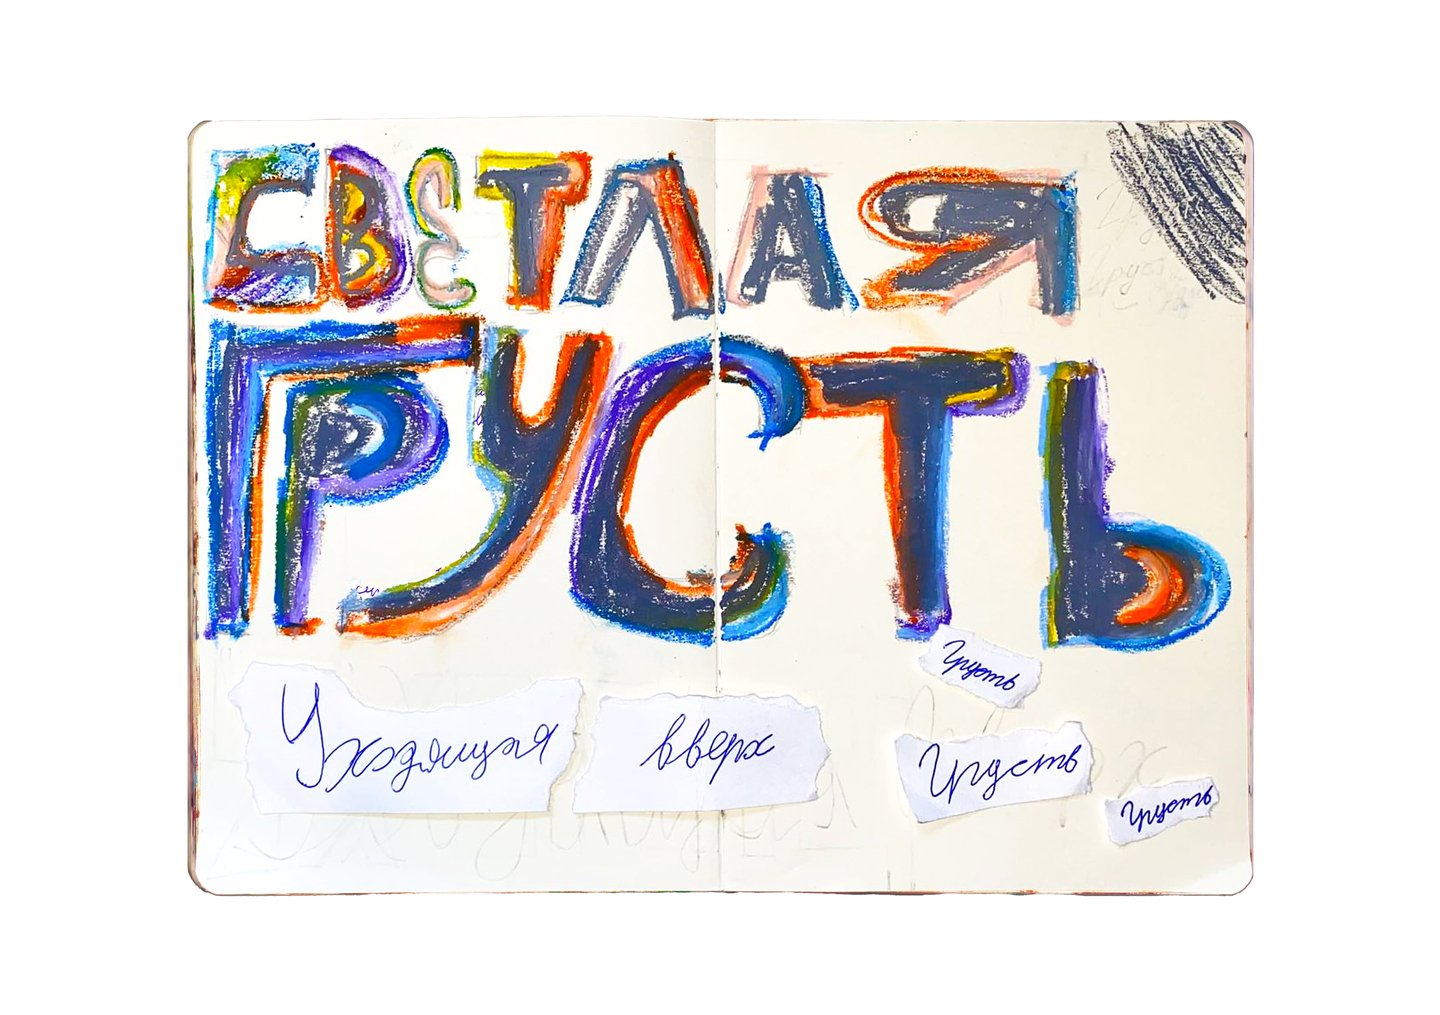 СВЕТЛАЯ
ГРУСТЬ
Грусть
Уходящая вверх Грусть
Грусть